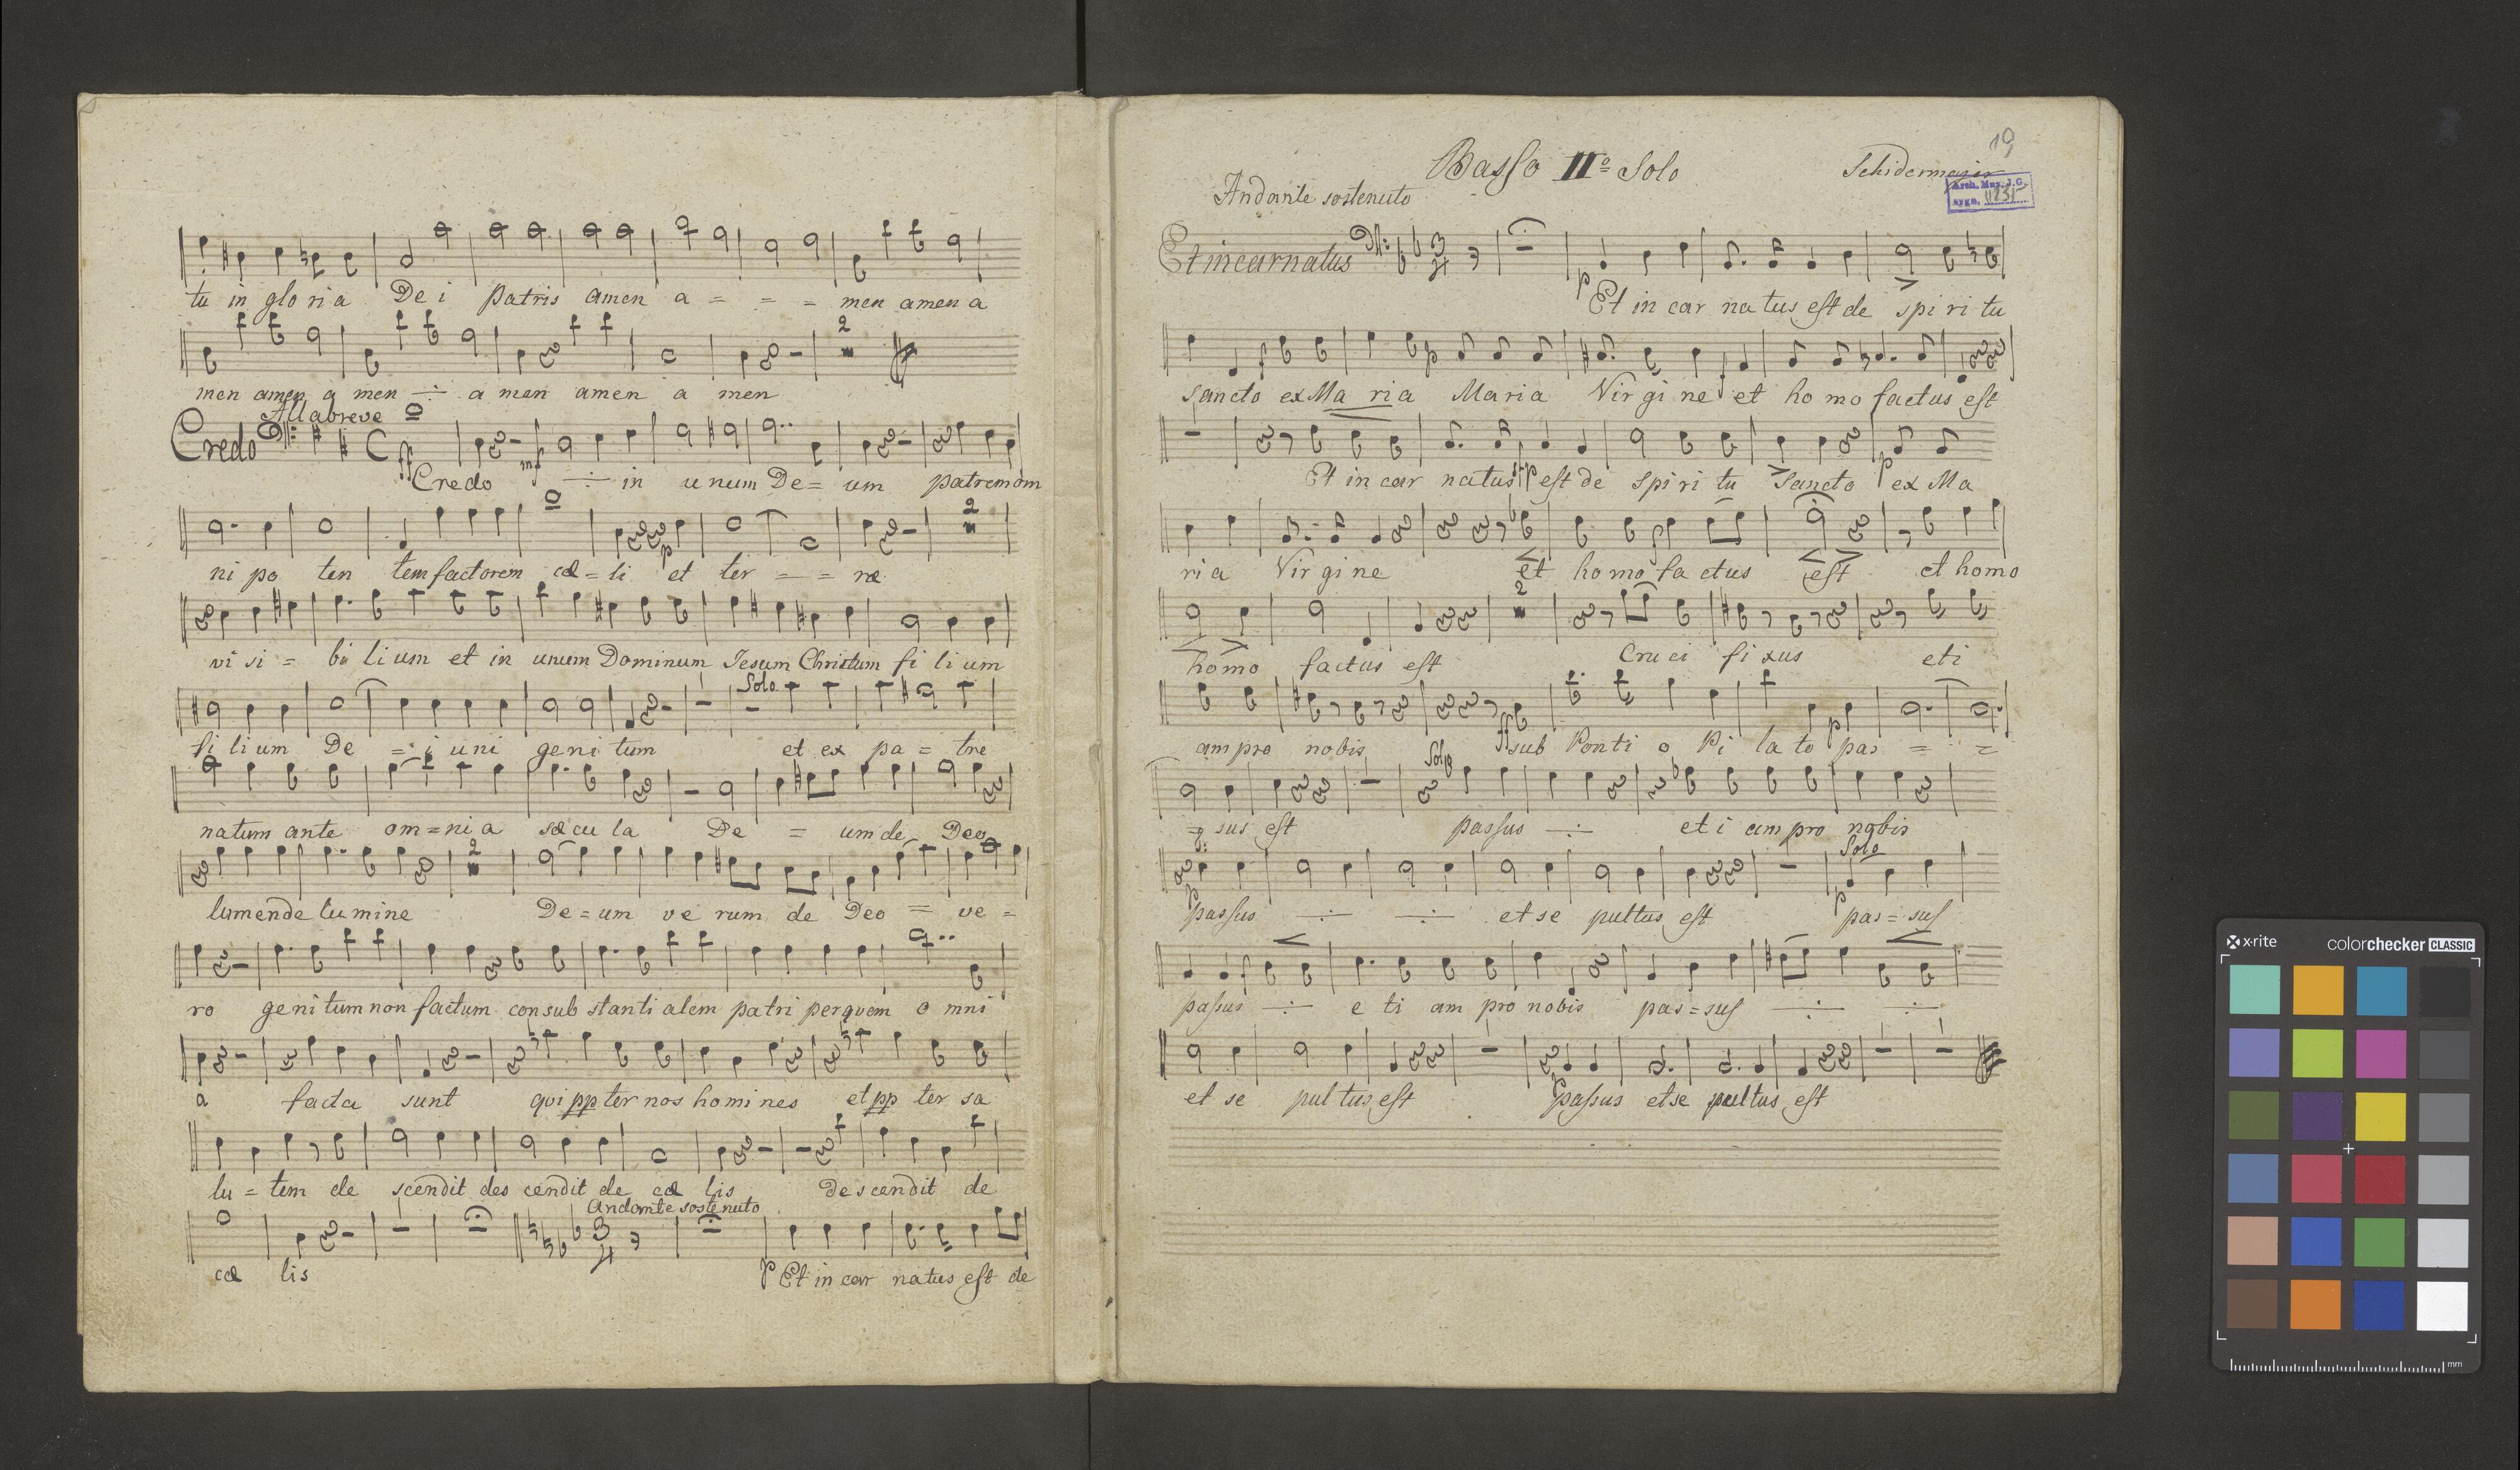 tu in glo ri a De i patris amen a = = = men amen a
men amen a men ÷ a men amen a men
Allabreve
Credo
ff Credo mf ÷ in unum De = um patrem om
ni po ten tem factorem cæ = li p et ter = = ræ
vi si = bi li um et in unum Dominum Jesum Christum fi li um
Solo
fi li um De = i uni geni tum et ex pa = tre
natum ante om = ni a sæ cu la De = um de Deo
lumen de lu mine De = um ve rum de Deo = ve =
ro geni tum non factum con sub stanti alem patri per quem o mni
a facta sunt qui pp ter nos homi nes et pp ter sa
lu = tem de scendit des cendit de cæ lis Descendit de
Andante sostenuto
cæ lis p Et in car natus est de
19
Basso IIº Solo
Schidermajer
Arch. Muz. J.G.
sygn.
Andante sostenuto
Et incarnatus
p Et in car na tus est de spi ri tu
sancto ex Ma ri a p Maria Vir gi ne et ho mo factus est
Et in car natus p est de spi ri tu Sancto p ex Ma
ria Vir gi ne et homo fa ctus est et homo
homo factus est Cru ci fi xus et i
am pro nobis ff sub Ponti o Pi la to p pas = =
Solo
= sus est passus ÷ et i am pro nobis
Solo
p passus ÷ ÷ et se pultus est p pas = sus
passus ÷ e ti am pro nobis pas = sus ÷ ÷
et se pul tus est p passus et se pultus est
x·rite
colorchecker CLASSIC
mm